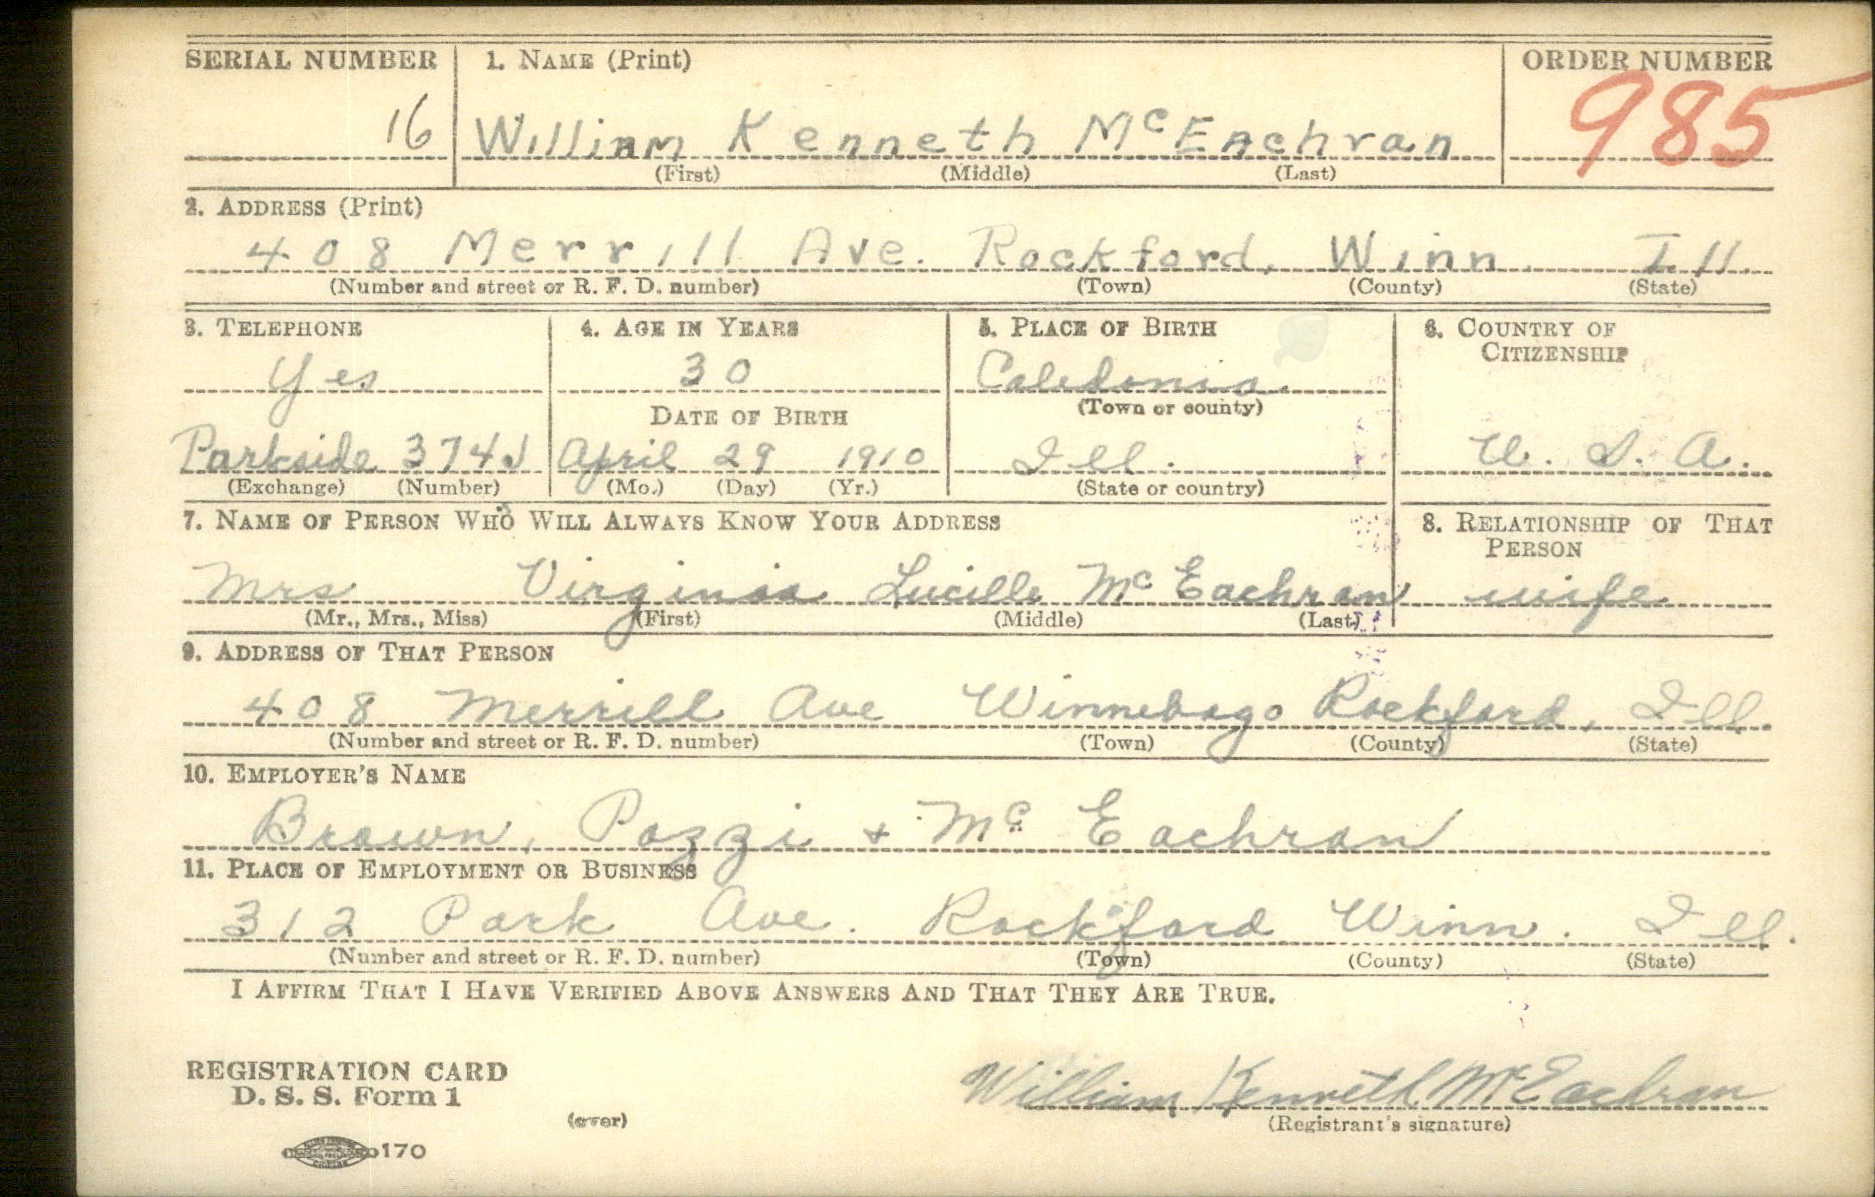 SERIAL NUMBER 1. NAME (Print) ORDER NUMBER
16 William Kenneth McEachran 985
(First) (Middle) (Last)
2. ADDRESS (Print)
408 Merrill Ave. Rockford, Winn. Ill.
(Number and street or R. F. D. number) (Town) (County) (State)
3. TELEPHONE 4. AGE IN YEARS 5. PLACE OF BIRTH 6. COUNTRY OF CITIZENSHIP
Yes 30 Caledonia.
DATE OF BIRTH (Town or county)
Parkside 374J April 29 1910 Ill. U. S. A.
(Exchange) (Number) (Mo.) (Day) (Yr.) (State or country)
7. NAME OF PERSON WHO WILL ALWAYS KNOW YOUR ADDRESS 8. RELATIONSHIP OF THAT PERSON
Mrs Virginia Lucille McEachran wife
(Mr., Mrs., Miss) (First) (Middle) (Last)
9. ADDRESS OF THAT PERSON
408 Merrill Ave Winnebago Rockford, Ill.
(Number and street or R. F. D. number) (Town) (County) (State)
10. EMPLOYER'S NAME
Brown, Pozzi & McEachran
11. PLACE OF EMPLOYMENT OR BUSINESS
312 Park Ave. Rockford Winn. Ill.
(Number and street or R. F. D. number) (Town) (County) (State)
I AFFIRM THAT I HAVE VERIFIED ABOVE ANSWERS AND THAT THEY ARE TRUE.
REGISTRATION CARD
D. S. S. Form 1
William Kenneth McEachran
(over) (Registrant's signature)
170